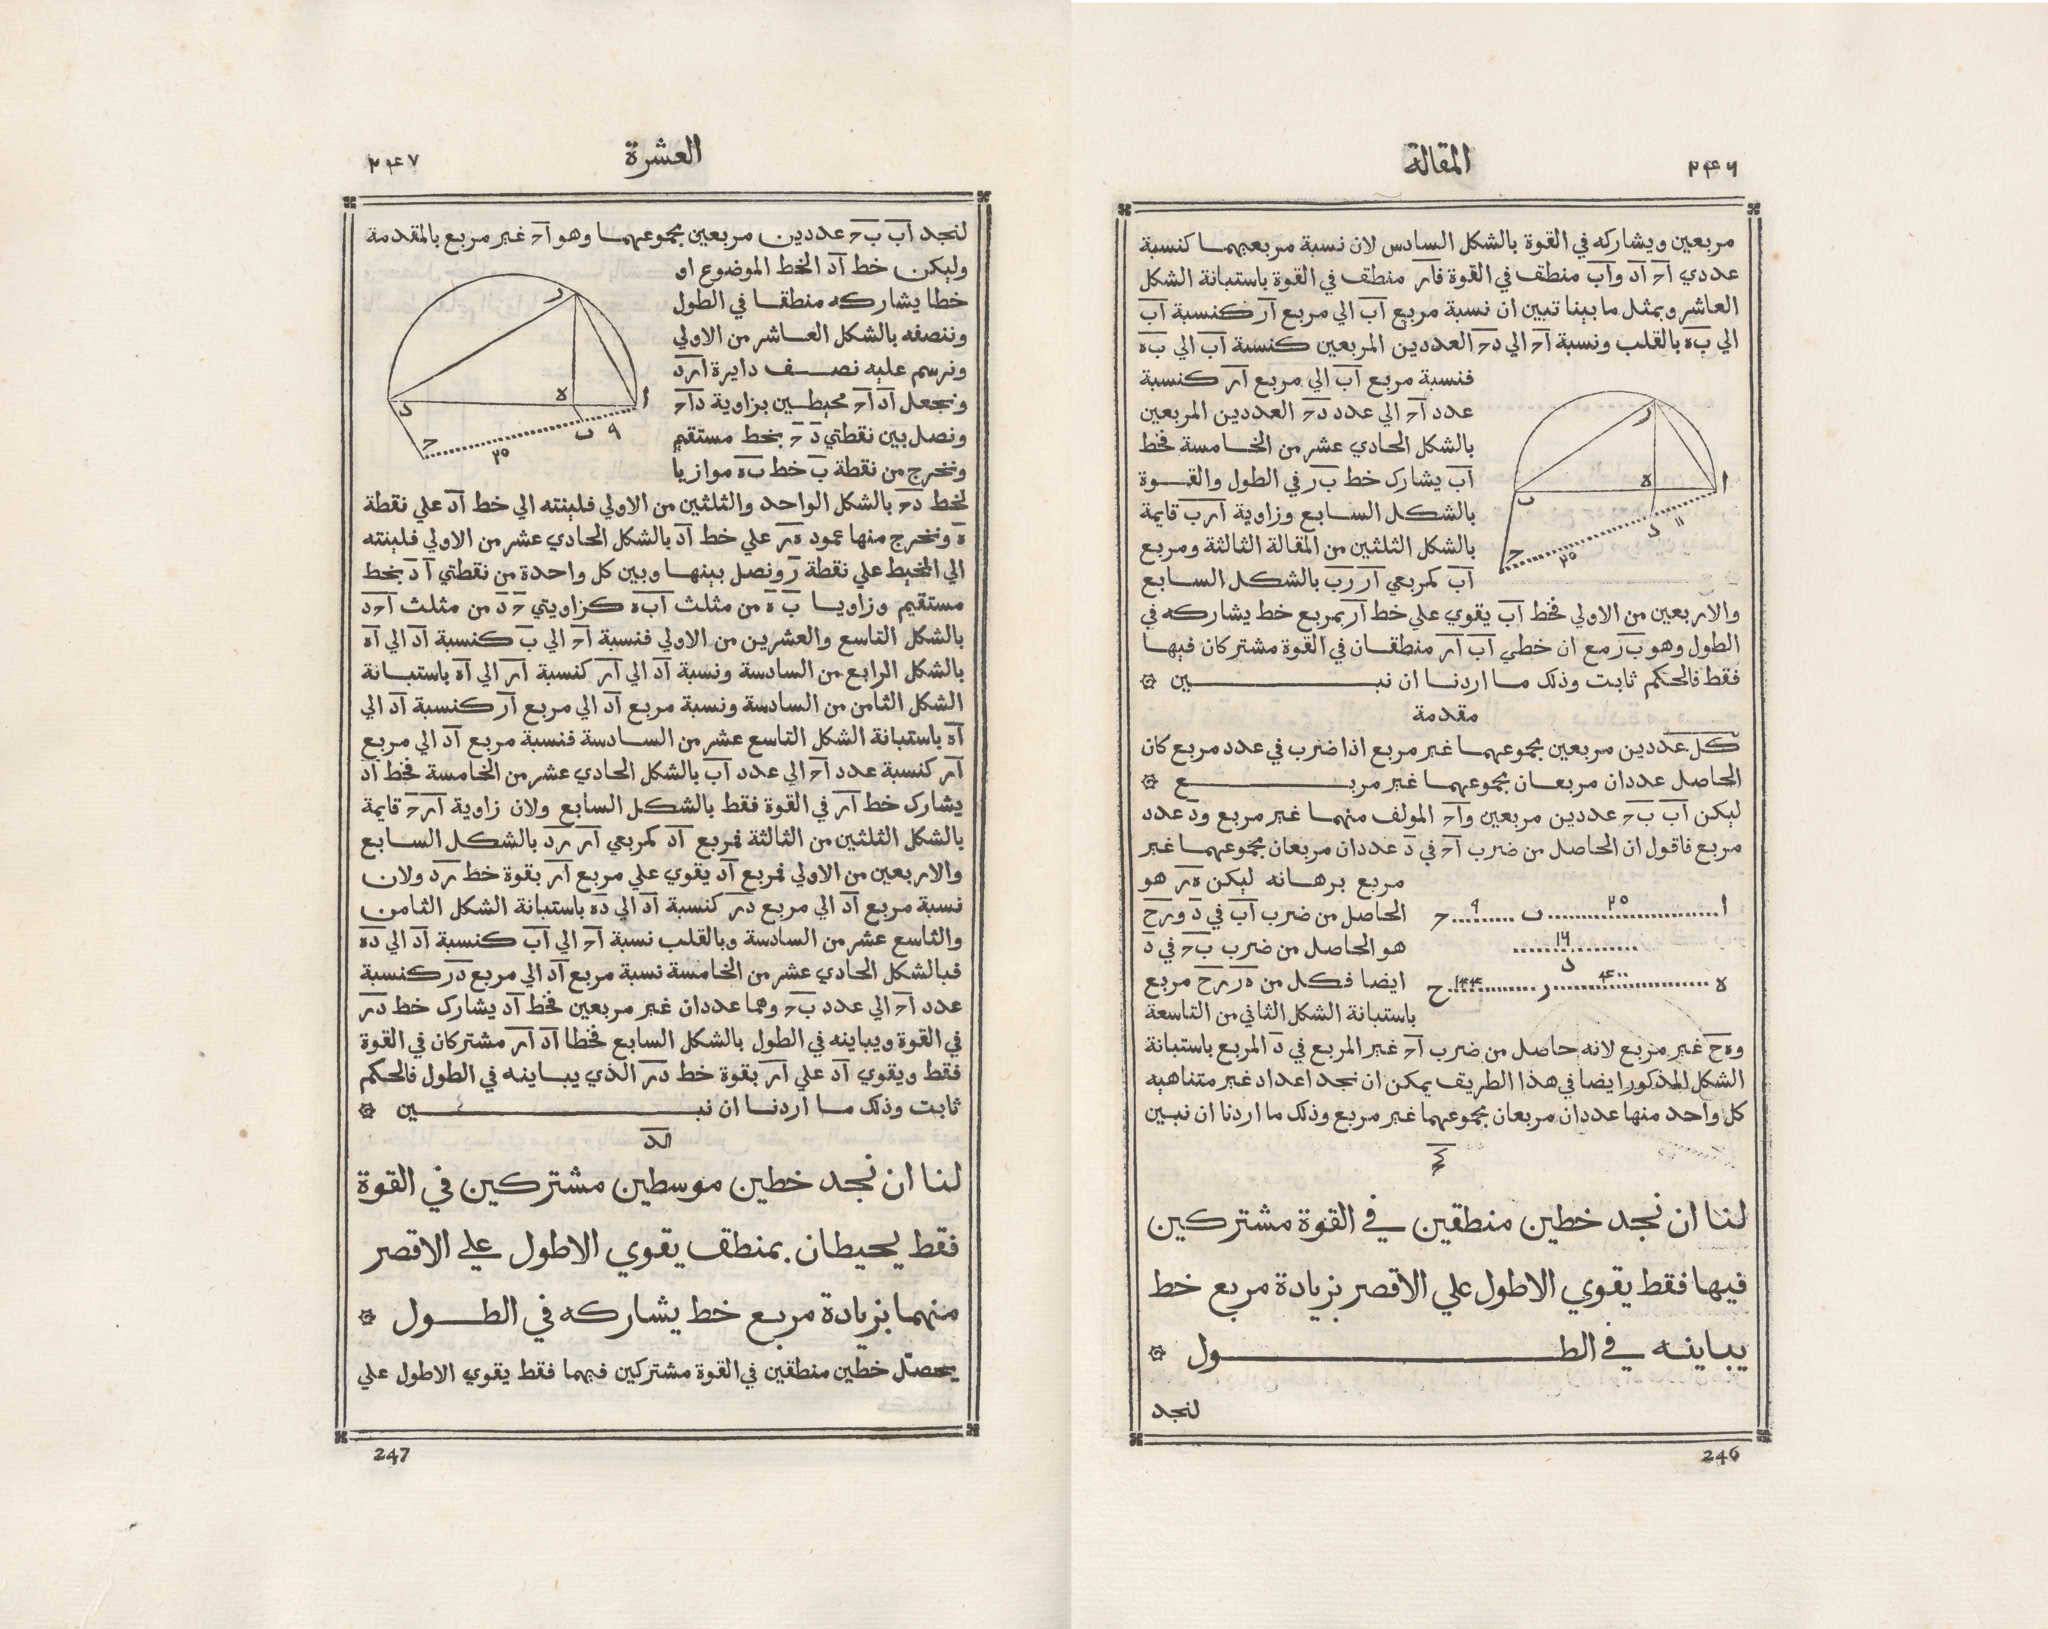 المقالة
٢٤٦
مربعين ويشاركه في القوة بالشكل السادس لان نسبة مربعيهما كنسبة
عددي اح اد واب منطقف في القوة فار منطقف في القوة باستبانة الشكل
العاشر وبمثل ما بينا تبين ان نسبة مربع اب الي مربع ار كنسبة اب
الي به بالقلب ونسبة اح الي دح العددين المربعين كنسبة اب الي به
فنسبة مربع اب الي مربع ار كنسبة
عدد اح الي عدد دح العددين المربعين
بالشكل الحادي عشر من الخامسة فخط
اب يشارك خط بر في الطول والقوة
بالشكل السابع وزاوية ارب قايمة
بالشكل الثلثين من المقالة الثالثة ومربع
اب كمربعي ار رب بالشكل السابع
ا
ر
ه
ب
د
١١
ح
٢٥
والاربعين من الاولي فخط اب يقوي علي خط ار بمربع خط يشاركه في
الطول وهو بر مع ان خطي اب ار منطقان في القوة مشتركان فيها
فقط فالحكم ثابت وذلك ما اردنا ان نبين
مقدمة
كل عددين مربعين مجموعهما غير مربع اذا ضرب في عدد مربع كان
الحاصل عددان مربعان مجموعهما غير مربع
ليكن اب بح عددين مربعين واح المولف منهما غير مربع ود عدد
مربع فاقول ان الحاصل من ضرب اح في د عددان مربعان مجموعهما غير
مربع برهانه ليكن هر هو
الحاصل من ضرب اب في د ورح
هو الحاصل من ضرب بح في د
ايضا فكل من هر رح مربع
باستبانة الشكل الثاني من التاسعة
ا ٢٥ ب ٩ ح
١٦
د
ه ٤٠٠ ر ١٤٤ ح
وهح غير مربع لانه حاصل من ضرب اح غير المربع في د المربع باستبانة
الشكل المذكور ايضا في هذا الطريف يمكن ان نجد اعداد غير متناهيه
كل واحد منها عددان مربعان مجموعهما غير مربع وذلك ما اردنا ان نبين
لنا ان نجد خطين منطقين في القوة مشتركين
فيها فقط يقوي الاطول علي الاقصر بزيادة مربع خط
يباينه في الطول
لنجد
246
العشرة
٢٤٧
لنجد اب بح عددين مربعين مجموعهما وهو اح غير مربع بالمقدمة
وليكن خط اد الخط الموضوع او
خطا يشاركه منطقا في الطول
وننصفه بالشكل العاشر من الاولي
ونرسم عليه نصف دايرة ارد
ونجعل اد اح محيطين بزاوية داح
ونصل بين نقطتي د ح بخط مستقيم
ونخرج من نقطة ب خط به موازيا
ا
ر
ه
د
ب
٩
ح
٢٥
لخط دح بالشكل الواحد والثلثين من الاولي فلينته الي خط اد علي نقطة
ه ونخرج منها عمود هر علي خط اد بالشكل الحادي عشر من الاولي فلينته
الي المحيط علي نقطة ر ونصل بينها وبين كل واحدة من نقطتي ا د بخط
مستقيم وزاويا ب ه من مثلث ابه كزاويتي ح د من مثلث احد
بالشكل التاسع والعشرين من الاولي فنسبة اح الي ب كنسبة اد الي اه
بالشكل الرابع من السادسة ونسبة اد الي ار كنسبة ار الي اه باستبانة
الشكل الثامن من السادسة ونسبة مربع اد الي مربع ار كنسبة اد الي
اه باستبانة الشكل التاسع عشر من السادسة فنسبة مربع اد الي مربع
ار كنسبة عدد اح الي عدد اب بالشكل الحادي عشر من الخامسة فخط اد
يشارك خط ار في القوة فقط بالشكل السابع ولان زاوية ارح قايمة
بالشكل الثلثين من الثالثة فمربع اد كمربعي ار رد بالشكل السابع
والاربعين من الاولي فمربع اد يقوي علي مربع ار بقوة خط رد ولان
نسبة مربع اد الي مربع در كنسبة اد الي ده باستبانة الشكل الثامن
والتاسع عشر من السادسة وبالقلب نسبة اح الي اب كنسبة اد الي ده
فبالشكل الحادي عشر من الخامسة نسبة مربع اد الي مربع در كنسبة
عدد اح الي عدد بح وهما عددان غير مربعين فخط اد يشارك خط در
في القوة ويباينه في الطول بالشكل السابع فخطا اد ار مشتركان في القوة
فقط ويقوي اد علي ار بقوة خط در الذي يباينه في الطول فالحكم
ثابت وذلك ما اردنا ان نبين
لد
لنا ان نجد خطين موسطين مشتركين في القوة
فقط يحيطان بمنطف يقوي الاطول علي الاقصر
منهما بزيادة مربع خط يشاركه في الطول
يحصل خطين منطقين في القوة مشتركين فيهما فقط يقوي الاطول علي
247